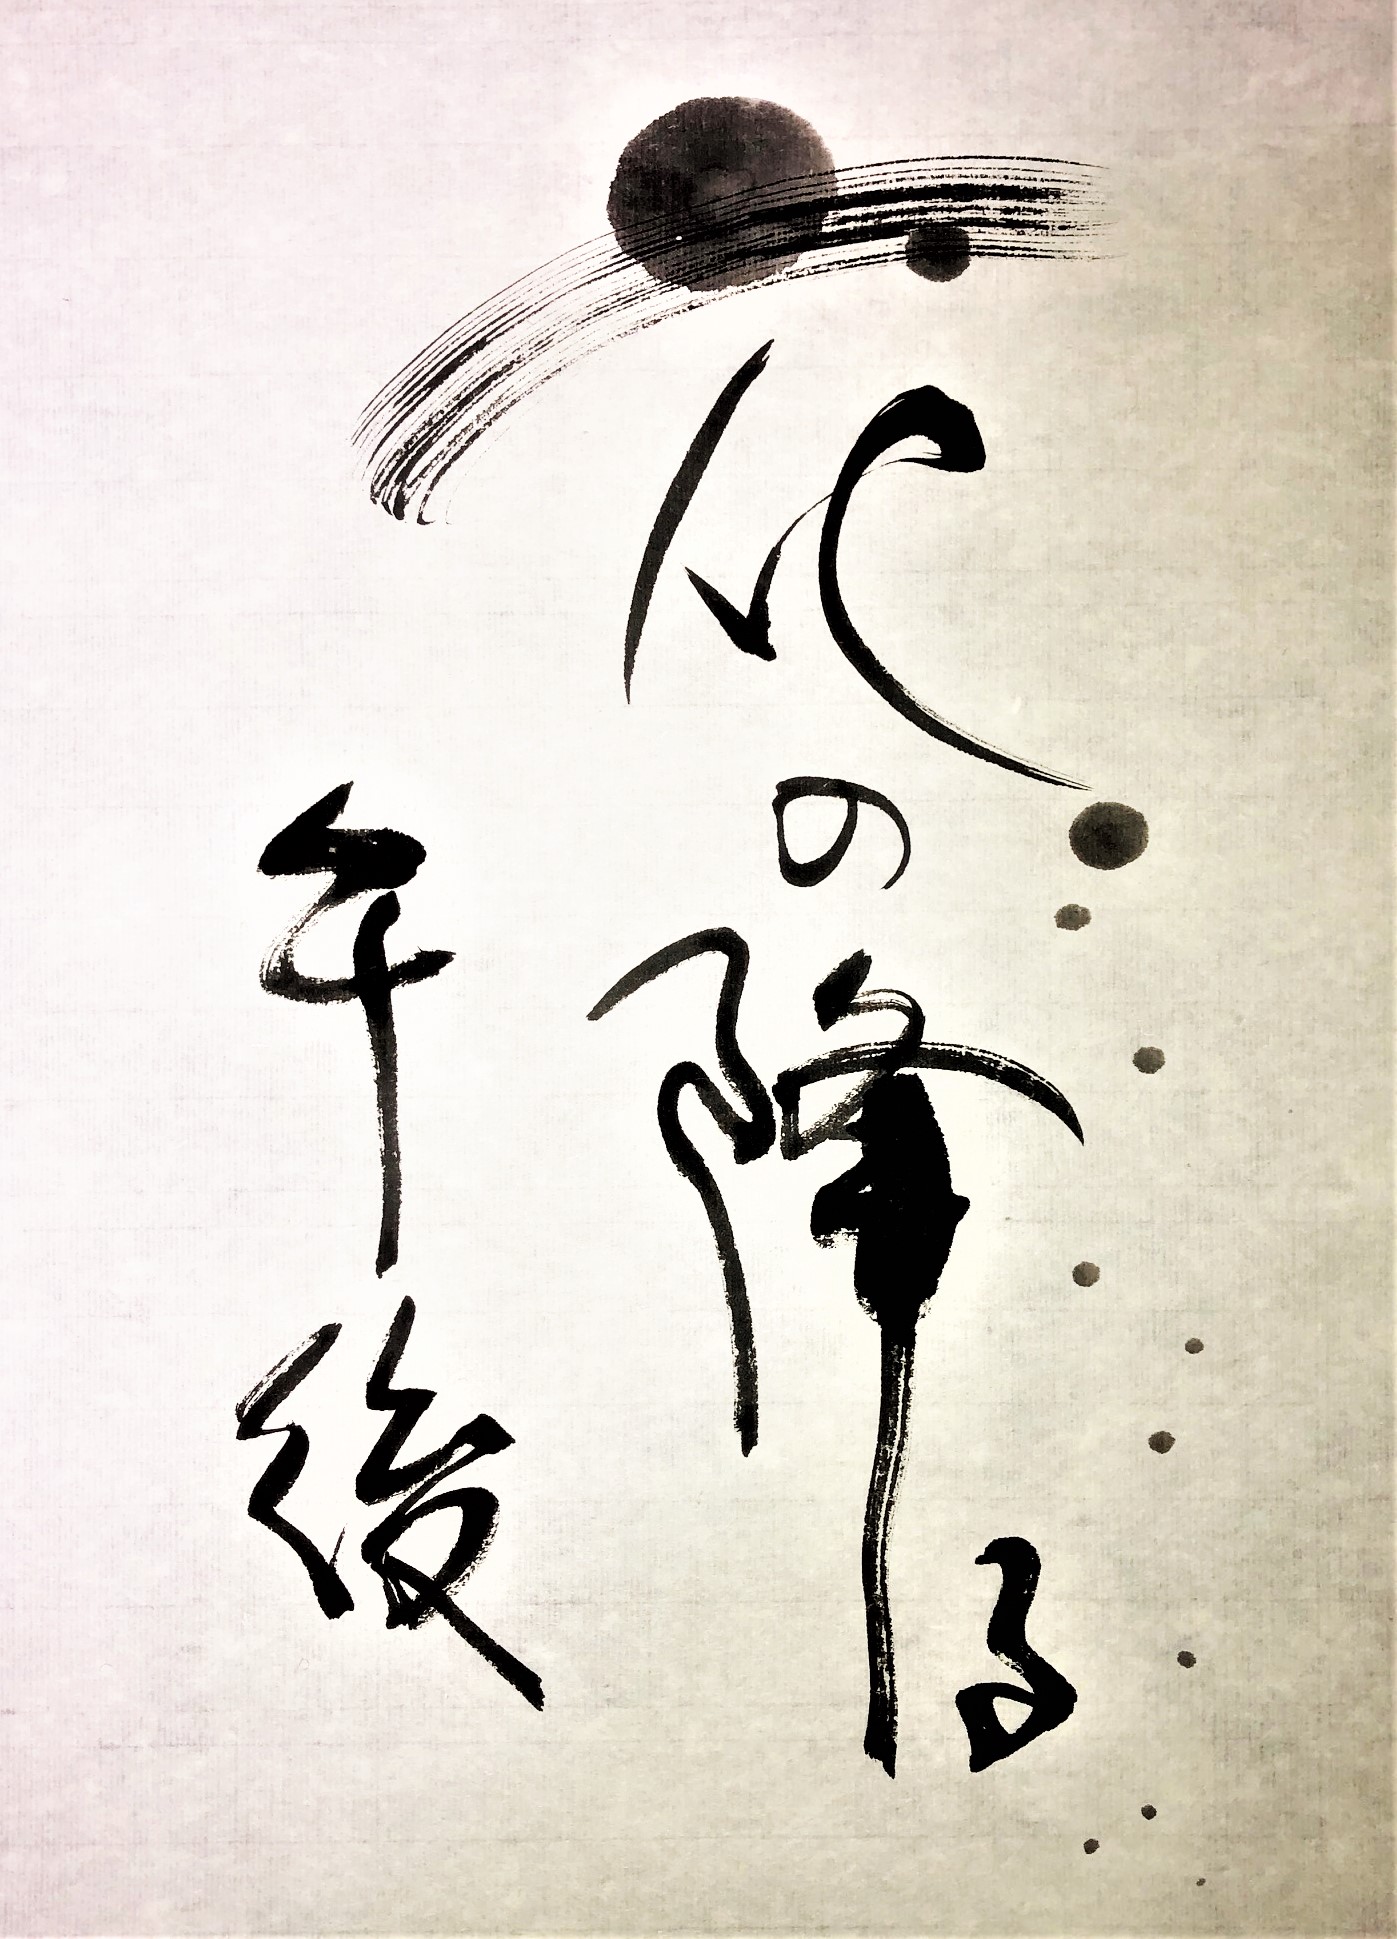 花の降る
午後